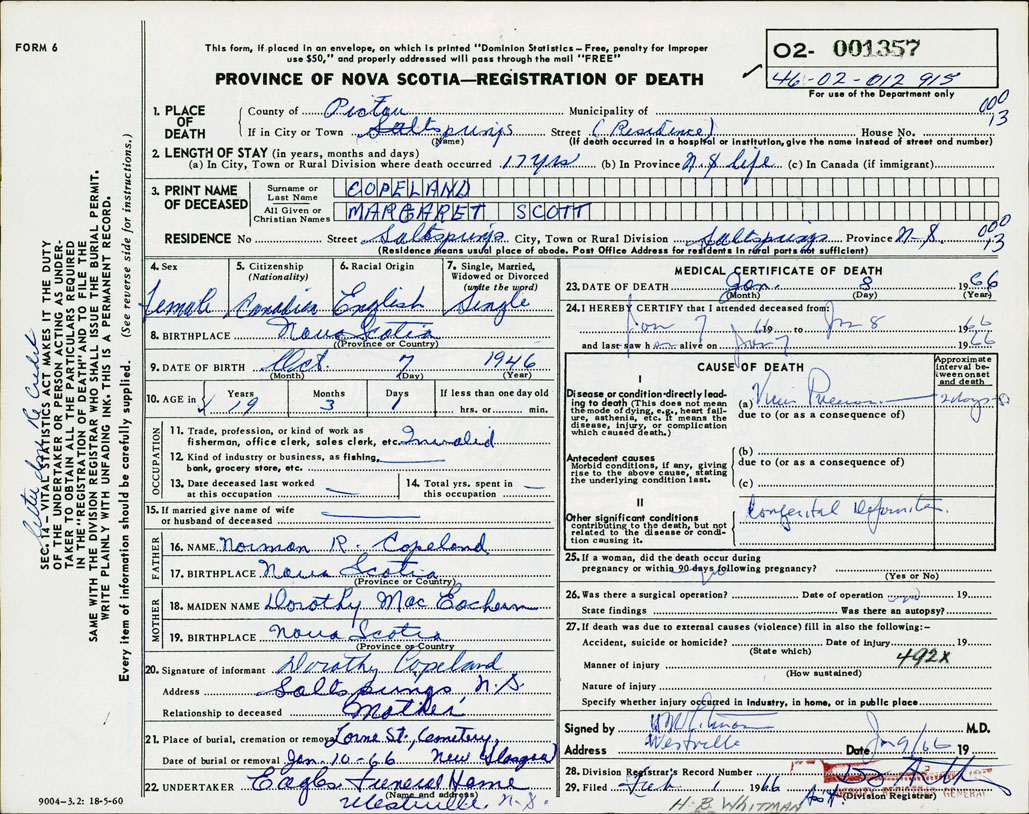 FORM 6
This form, if placed in an envelope, on which is printed "Dominion Statistics – Free, penalty for improper
use $50," and properly addressed will pass through the mail "FREE"
PROVINCE OF NOVA SCOTIA—REGISTRATION OF DEATH
O2- 001357
46-02-012 915
For use of the Department only
1. PLACE OF DEATH
County of Pictou Municipality of 000 13
If in City or Town Saltsprings Street (Residence) House No.
(Name) (If death occurred in a hospital or institution, give the name instead of street and number)
2. LENGTH OF STAY (in years, months and days)
(a) In City, Town or Rural Division where death occurred 17 yrs (b) In Province N.S life (c) In Canada (if immigrant)
3. PRINT NAME OF DECEASED
Surname or Last Name COPELAND
All Given or Christian Names MARGARET SCOTT
RESIDENCE No Street Saltsprings City, Town or Rural Division Saltsprings Province N.S. 000 13
(Residence means usual place of abode. Post Office Address for residents in rural parts not sufficient)
4. Sex female
5. Citizenship (Nationality) Canadian
6. Racial Origin English
7. Single, Married, Widowed or Divorced (write the word) Single
8. BIRTHPLACE Nova Scotia
(Province or Country)
9. DATE OF BIRTH Oct. 7 1946
(Month) (Day) (Year)
10. AGE in Years 19 Months 3 Days 1 If less than one day old hrs. or min.
OCCUPATION
11. Trade, profession, or kind of work as
fisherman, office clerk, sales clerk, etc. Invalid
12. Kind of industry or business, as fishing,
bank, grocery store, etc.
13. Date deceased last worked
at this occupation
14. Total yrs. spent in
this occupation
15. If married give name of wife
or husband of deceased
FATHER
16. NAME Norman R. Copeland
17. BIRTHPLACE Nova Scotia
(Province or Country)
MOTHER
18. MAIDEN NAME Dorothy MacEachern
19. BIRTHPLACE Nova Scotia
(Province or Country)
20. Signature of informant Dorothy Copeland
Address Saltsprings, N.S.
Relationship to deceased Mother
21. Place of burial, cremation or removal Lorne St., Cemetery,
Date of burial or removal Jan. 10-66 New Glasgow
22. UNDERTAKER Eagles Funeral Home
(Name and address)
Westville N.S.
MEDICAL CERTIFICATE OF DEATH
23. DATE OF DEATH Jan. 8 1966
(Month) (Day) (Year)
24. I HEREBY CERTIFY that I attended deceased from:
Jan 7 19 to Jan 8 1966
and last saw h alive on Jan 7 1966
CAUSE OF DEATH
Approximate interval between onset and death
I
Disease or condition directly leading to death (This does not mean the mode of dying, e.g., heart failure, asthenia, etc. It means the disease, injury, or complication which caused death.)
(a) Virus 2 days
due to (or as a consequence of)
Antecedent causes
Morbid conditions, if any, giving rise to the above cause, stating the underlying condition last.
(b)
due to (or as a consequence of)
(c)
II
Other significant conditions
contributing to the death, but not related to the disease or condition causing it.
Congenital Deformities.
25. If a woman, did the death occur during
pregnancy or within 90 days following pregnancy?
(Yes or No)
26. Was there a surgical operation? Date of operation 19
State findings Was there an autopsy?
27. If death was due to external causes (violence) fill in also the following:-
Accident, suicide or homicide? Date of injury 19
(State which)
492X
Manner of injury
(How sustained)
Nature of injury
Specify whether injury occurred in industry, in home, or in public place
Signed by M.D.
Address Westville Date Jan 9/66 19
28. Division Registrar's Record Number
29. Filed Feb 1 1966
(Division Registrar)
DEPUTY REGISTRAR GENERAL
H. B. WHITMAN
9004-3.2: 18-5-60
SEC. 14 – VITAL STATISTICS ACT MAKES IT THE DUTY
OF THE UNDERTAKER OR PERSON ACTING AS UNDER-
TAKER TO OBTAIN ALL THE PARTICULARS REQUIRED
IN THE "REGISTRATION OF DEATH" AND TO FILE THE
SAME WITH THE DIVISION REGISTRAR WHO SHALL ISSUE THE BURIAL PERMIT.
WRITE PLAINLY WITH UNFADING INK. THIS IS A PERMANENT RECORD.
Every item of information should be carefully supplied. (See reverse side for instructions.)